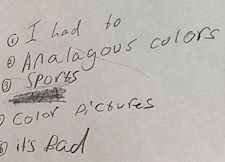 ① I had to
② Analagous colors
③ Sports
Color Pictures
its Bad